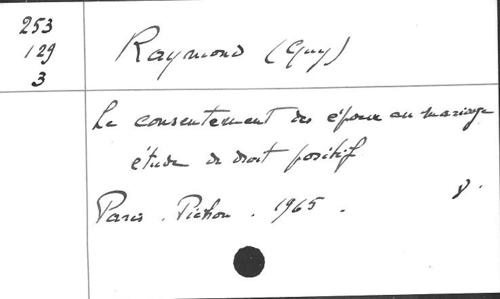 253
129
3
Raymond (Guy)
Le consentement des époux au mariage
étude de droit positif
Paris . Pichon . 1965 . 8.